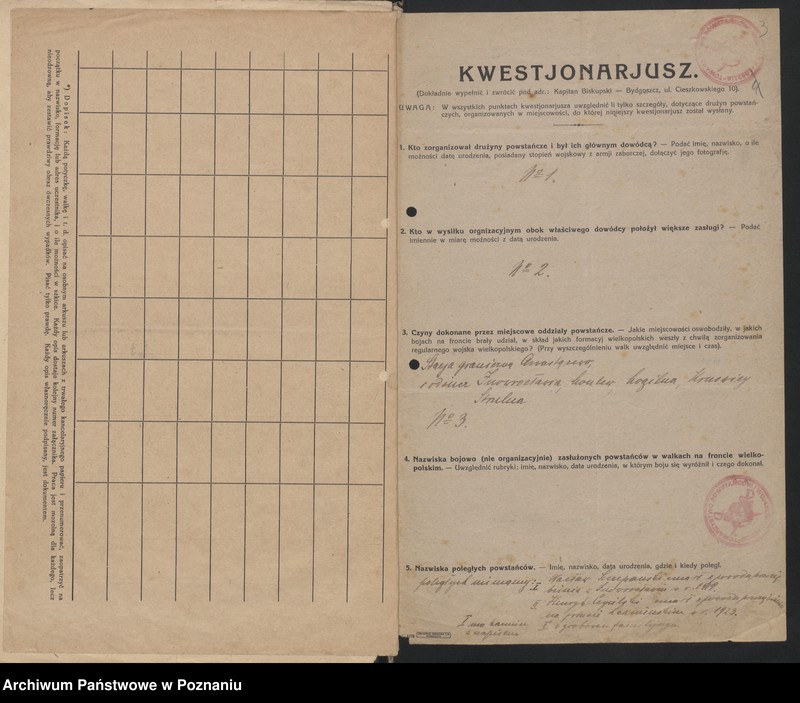 *) Dopisek: Każdą potyczkę, walkę i t. d. opisać na osobnym arkuszu lub arkuszach z trwałego kancelaryjnego papieru i ponumerować, zaopatrzyć na
początku w nazwisko, formację lub adres uczestnika, i o ile możności w szkice. Każdy opis dostaje kolejny numer załącznika. Praca jest mozolną dla każdego, lecz
nieodzowną, aby zestawić prawdziwy obraz ówczesnych wypadków. Pisać tylko prawdę. Każdy opis własnoręcznie podpisany, jest dokumentem.
3
KWESTJONARJUSZ.
(Dokładnie wypełnić i zwrócić pod adr.: Kapitan Biskupski — Bydgoszcz, ul. Cieszkowskiego 10).
UWAGA: W wszystkich punktach kwestjonarjusza uwzględnić li tylko szczegóły, dotyczące drużyn powstań-
czych, organizowanych w miejscowości, do której niniejszy kwestjonarjusz został wysłany.
1. Kto zorganizował drużyny powstańcze i był ich głównym dowódcą? — Podać imię, nazwisko, o ile
możności datę urodzenia, posiadany stopień wojskowy z armji zaborczej, dołączyć jego fotografję.
No 1.
2. Kto w wysiłku orgnizacyjnym obok właściwego dowódcy położył większe zasługi? — Podać
imiennie w miarę możności z datą urodzenia.
No 2.
3. Czyny dokonane przez miejscowe oddziały powstańcze. — Jakie miejscowości oswobodziły, w jakich
bojach na froncie brały udział, w skład jakich formacyj wielkopolskich weszły z chwilą zorganizowania
regularnego wojska wielkopolskiego? (Przy wyszczególnieniu walk uwzględnić miejsce i czas).
Stacja graniczna
odsiecz Inowrocławia,
No 3.
4. Nazwiska bojowo (nie organizacyjnie) zasłużonych powstańców w walkach na froncie wielko-
polskim. — Uwzględnić rubryki: imię, nazwisko, data urodzenia, w którym boju się wyróżnił i czego dokonał.
5. Nazwiska poległych powstańców. — Imię, nazwisko, data urodzenia, gdzie i kiedy poległ.
poległych nie mamy: I Wacław
II Henryk
w r. 1923.
Archiwum Państwowe w Poznaniu